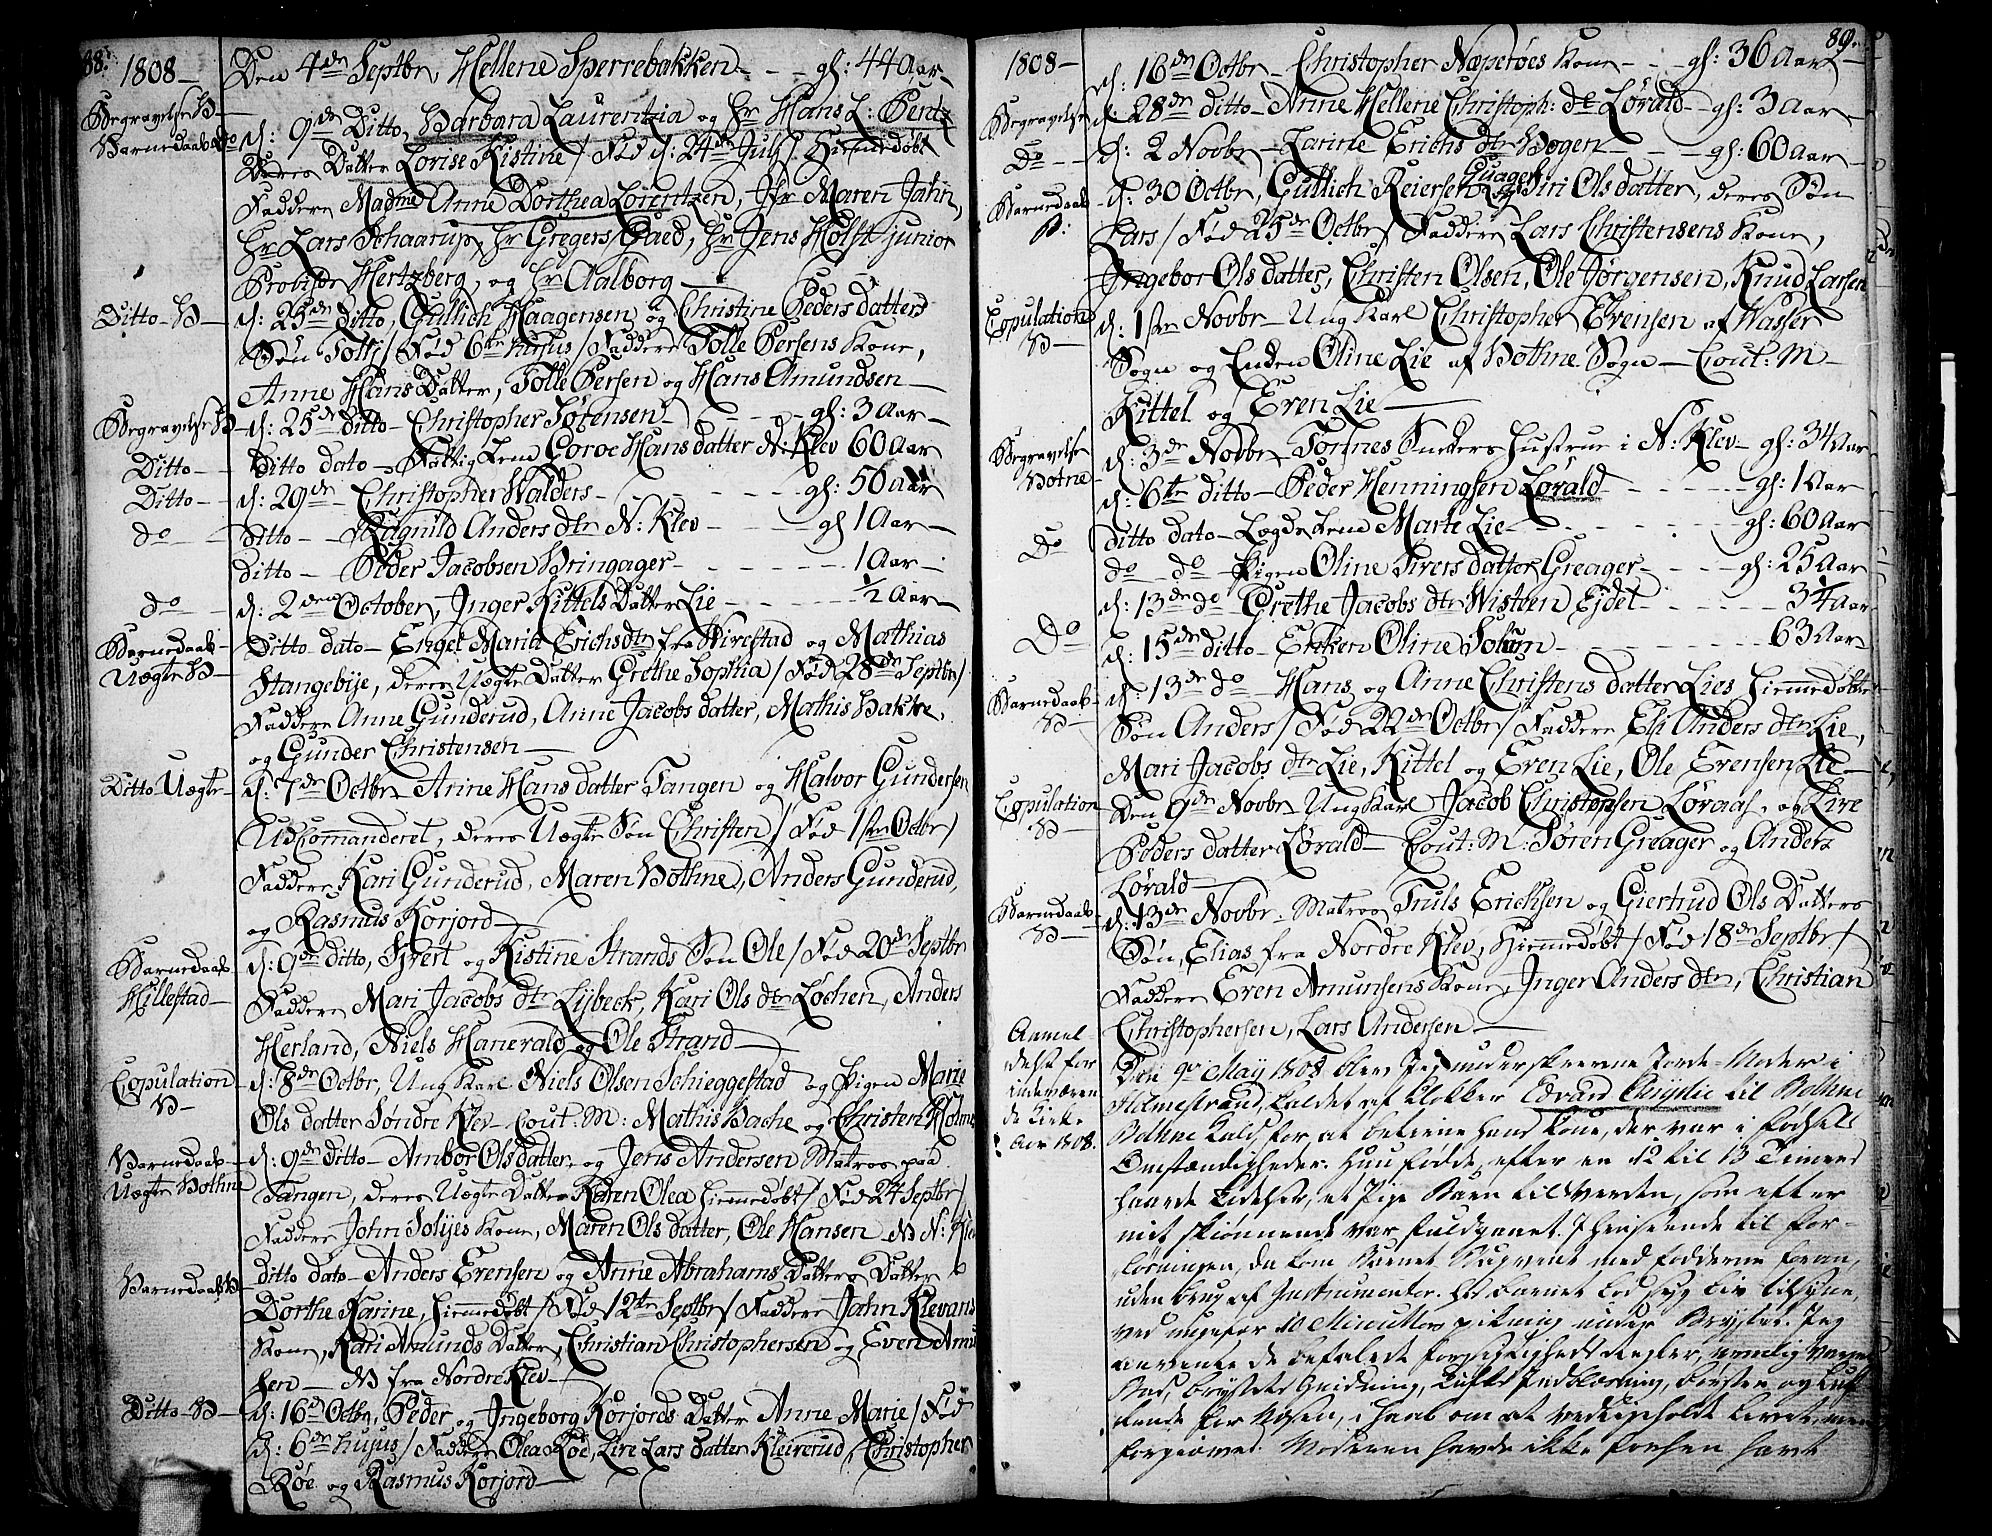 88.
1808 —
Den 4de Septbr, Hellene Sperrebakken — gl: 44 Aar —
Begravelse B —
Barnedaab do
d: 9de Ditto, Barbara Laurentzia og Hr Hans L: Bentz
Deres Datter Lovise Kistine / Fød d: 24de Julj / Hiemedøbt
Faddere Madme Anne Dorthea Lorentzen, Jfr Maren Jahn,
Hr Lars Schaarup, Hr Gregers Gaed, Hr Jens Holst junior
Probist Hertzberg, og Hr Aalborg —
Ditto — B —
d: 25de ditto, Gullich Haagensen og Christine Peders datters
Søn Tollef / Fød 6te hujus / Faddere Tolle Persens Kone,
Anne Hans Datter, Tolle Persen og Hans Amundsen —
Begravelse B —
d: 25de ditto — Christopher Sørensen — gl: 3 Aar —
Ditto —
Ditto dato — Fattig Lem Goroe Hans datter N: Klev 60 Aar
Ditto —
d: 29de — Christopher Walders — gl: 50 Aar
do —
Ditto — Ragnild Anders dtr N: Klev — gl 1 Aar —
ditto — Peder Jacobsen Bringager — 1 Aar —
do —
d: 2den October, Inger Kittels Datter Lie — 1/2 Aar —
Barnedaab —
Uægte B —
Ditto dato — Engel Maria Erichs dtr fra Wirestad og Mathias
Stangebye, deres Uægte Datter Grethe Sophia / Fød 28de Septbr /
Faddere Anne Gunderud, Anne Jacobs datter, Mathis Bakke,
og Gunder Christensen —
Ditto Uægte —
d: 7de Octbr Anne Hans datter Tangen og Halvor Gundersen
UdCommanderet, deres Uægte Søn Christen / Fød 1ste Octbr /
Faddere Kari Gunderud, Maren Bothne, Anders Gunderud,
og Rasmus Korjord —
Barnedaab
Hillestad —
d: 9de ditto, Sivert og Kistine Strands Søn Ole / Fød 20de Septbr
Faddere Mari Jacobs dtr Lybeck, Kari Ols dtr Løchen, Anders
Herland, Niels Hanevald og Ole Strand —
Copulation
B —
d: 8de Octbr, Ung Karl Niels Olsen Schieggestad og Pigen Marie
Ols datter Søndre Klev — Cout: M: Mathis Bache og Christen Holme
Barnedaab —
Uægte Bothne
d: 9de ditto — Ambor Ols datter, og Jens Andersen Matros paa
Tangen, deres Uægte Datter Karen Olea Hiemedøbt / Fød 24 Septbr /
Faddere John Solyes Kone, Maren Ols datter, Ole Hansen — N: Klev
Barnedaab B
ditto dato — Anders Evensen og Anne Abrahams Datters Datter
Dorthe Karine, Hiemedøbt / Fød 12te Septbr / Faddere Jahn Klevans
Kone, Kari Amunds Datter, Christian Christophersen og Even Amu
sen — fra Nordre Klev —
Ditto — B —
d: 16de Octbr, Peder og Ingeborg Korjords Datter Anne Marie / Fød
d: 6de hujus / Faddere Olea Røe, Live Lars datter Kleiverud, Christopher
Røe og Rasmus Korjord —
89.
1808 —
d: 16de Octbr — Christopher Næperøes Kone — gl: 36 Aar —
Begravelse
d: 28de ditto — Anne Hellene Christoph: dtr Lørald — gl: 3 Aar
Do —
d: 2 Novbr — Karine Erichs dtr Bøgen — gl: 60 Aar —
Barnedaab
B:
d: 30 Octbr, Gullich Reiersen Guager og Siri Ols datter, deres Søn
Lars / Fød 25de Octbr / Faddere Lars Christensens Kone,
Ingebor Ols datter, Christen Olsen, Ole Jørgensen, Knud Larsen
Copulation
B —
d: 1ste Novbr — Ung Karl Christopher Evensen af Wasser
Sogn og Enken Oline Lie af Bothne Sogn — Cout: M —
Kittel og Even Lie —
Begravelse
Botne —
d: 3de Novbr Tormes Snekers Hustrue i N: Klev — gl: 34 Aar
d: 6te ditto — Peder Henningsen Lørald — gl: 1 Aar
Do
ditto dato — Lægds Lem Marte Lie — gl: 60 Aar
do — do — Pigen Oline Sivers datter Greager — gl: 25 Aar
d: 13de do — Grethe Jacobs dtr Wisteen Ejdet — 3/4 Aar
Do
d: 15de ditto — Enken Oline Solum — 63 Aar —
Barnedaab
B —
d: 13de do — Hans og Anne Christens datter Lies Hiemedøbte
Søn Anders / Fød 22de Octbr / Faddere Eli Anders dtr Lie,
Mari Jacobs dtr Lie, Kittel og Even Lie, Ole Evensen Lie —
Copulation
B —
Den 9de Novbr Ung Karl Jacob Christophsen Løraas, og Live
Peders datter Lørald — Cout: M: Søren Greager og Anders
Lørald —
Barnedaab —
B —
d: 13de Novbr. Matros Truls Ericksen og Giertrud Ols Datters
Søn, Elias fra Nordre Klev, Hiemedøbt / Fød 18de Septbr /
Faddere Even Amunsens Kone, Inger Anders dtr, Christian
Christophersen, Lars Andersen —
Anmel
delse for
indeværen
de Kirke
Aar 1808.
Den 9de May 1808 blev Jeg underskrevne Jorde-Moder i
Holmestrand, kaldet af Klokker Edvard Thrydtz til Bothne
Bothne kald, for, at betiene hans Kone, der var i Fødsels
Omstændigheder. Hun fødde, efter en 12 til 13 Timers
haarde Lidelser, et Pige Barn til Verden, som efter
mit skiønnende var fuldbaaret. I henseende til For-
løsningen, da kom Barnet Bugvendt med Fødderne foran,
uden brug af Instrumenter. Har Barnet lod sig Liv tilsyne,
ved ungefær 10 Minutters pikning under Brystet. Jeg
anvendte de befalede forsigtigheds Regler, nemlig Varme
Bad, brystets Gnidning, Lufts Indblæsning, børsten og Luf
tende for Næsen, i haab om at vedligeholde Livet, men
forgiæves. Moderen havde ikke forhen havt